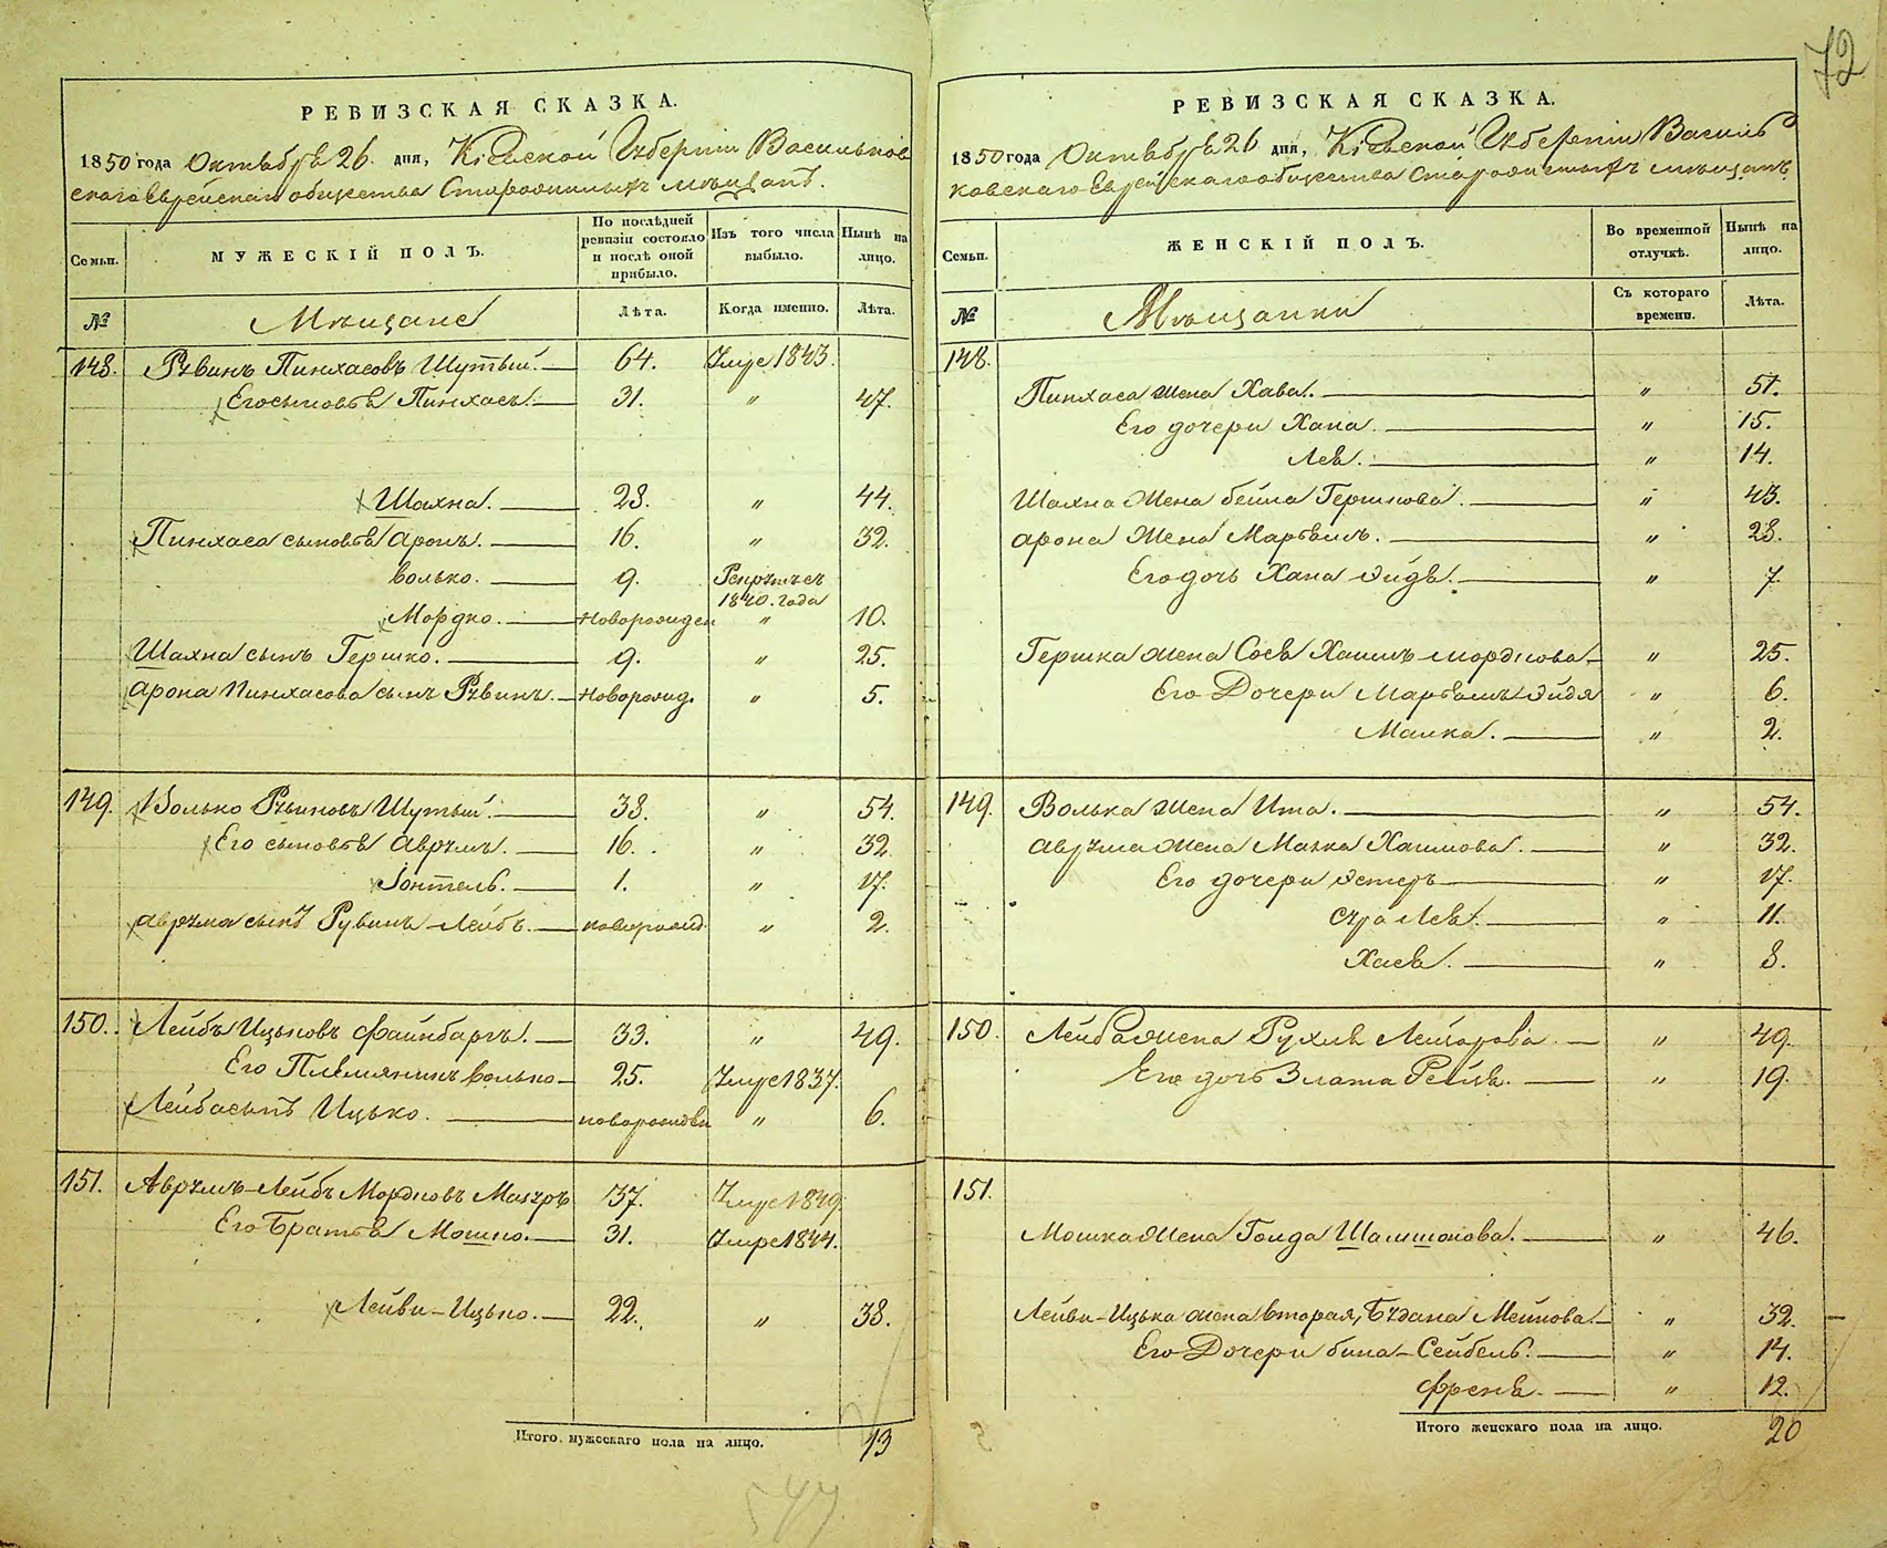 72
РЕВИЗСКАЯ СКАЗКА.
1850 года Октября 26 дня, Кіевской Губерніи Васильков
скаго Еврейскаго общества Старожилыхъ мѣщанъ.
Семьи.
МУЖЕСКІЙ ПОЛЪ.
По послѣдней ревизіи состояло и послѣ оной прибыло.
Изъ того числа выбыло.
Нынѣ на лицо.
№
Мѣщане
Лѣта.
Когда именно.
Лѣта.
148. Рувинъ Пинхасовъ Шутый. 64. Умре 1843.
Его сыновья Пинхасъ. 31. " 47.
Шахна. 28. " 44.
Пинхаса сыновья Аронъ. 16. " 32.
Волько. 9. Рекрутъ съ
1840. года
Мордко. новорожден " 10.
Шахна сынъ Гершко. 9. " 25.
Арона Пинхасова сынъ Рувинъ. новорожд. " 5.
149. Волько Рувиновъ Шутый. 38. " 54.
Его сыновья Аврумъ. 16. " 32
Іонтель. 1. " 17.
Аврума сынъ Рувинъ-Лейбъ. новорожд. " 2.
150. Лейбъ Ицьковъ Файнбаргъ. 33. " 49.
Его Племянникъ Волько 25. Умре 1837.
Лейба сынъ Ицько. новорожден " 6.
151. Аврумъ-Лейбъ Мордковъ 37. Умре 1849.
Его Братья Мошко. 31. Умре 1844.
Лейви-Ицько. 22. " 38.
Итого мужескаго пола на лицо. 13
РЕВИЗСКАЯ СКАЗКА.
1850 года Октября 26 дня, Кіевской Губерніи Василь
ковскаго Еврейскаго общества Старожилыхъ мѣщанъ
Семьи.
ЖЕНСКІЙ ПОЛЪ.
Во временной отлучкѣ.
Нынѣ на лицо.
№
Мѣщанки
Съ котораго времени.
Лѣта.
148.
Пинхаса жена Хава. " 51.
Его дочери Хана. " 15.
Лея. " 14.
Шахна жена Бейла Гершкова. " 43.
Арона жена Марьямъ. " 28.
Его дочь Хана Эйдя. " 7.
Гершка жена Сося Хаимъ-Мордкова " 25.
Его Дочери Марьямъ-Эйдя " 6.
Малка. " 2.
149. Волька жена Ита. " 54.
Аврума жена Малка Хаимова. " 32.
Его дочери Эстеръ " 17.
Сура Лея. " 11.
Хася. " 8.
150. Лейба жена Рухля Лейзорова " 49.
Его дочь Злата Рейзя. " 19.
151.
Мошка жена Голда Шамшонова. " 46.
Лейви-Ицька жена вторая, Бѣдана Мейкова " 32.
Его Дочери Бина-Сейбель. " 14.
Френя. " 12.
Итого женскаго пола на лицо. 20